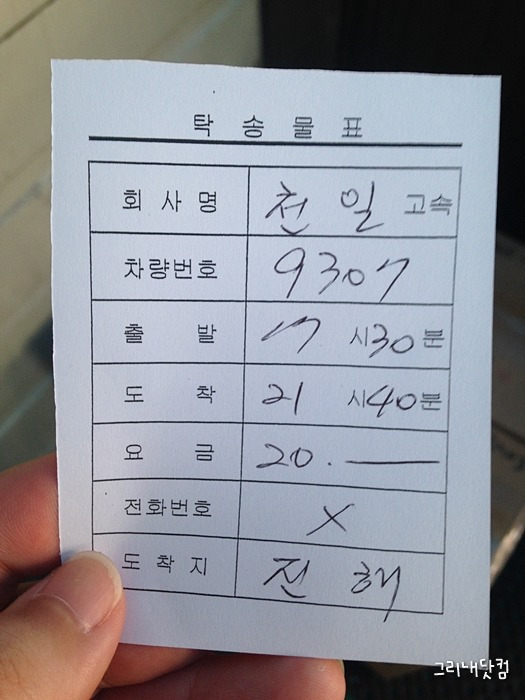 탁 송 물 표
회 사 명 천 일 고속
차량번호 9307
출 발 17 시 30 분
도 착 21 시 40 분
요 금 20. —
전화번호 X
도 착 지 진 해
그리내닷컴